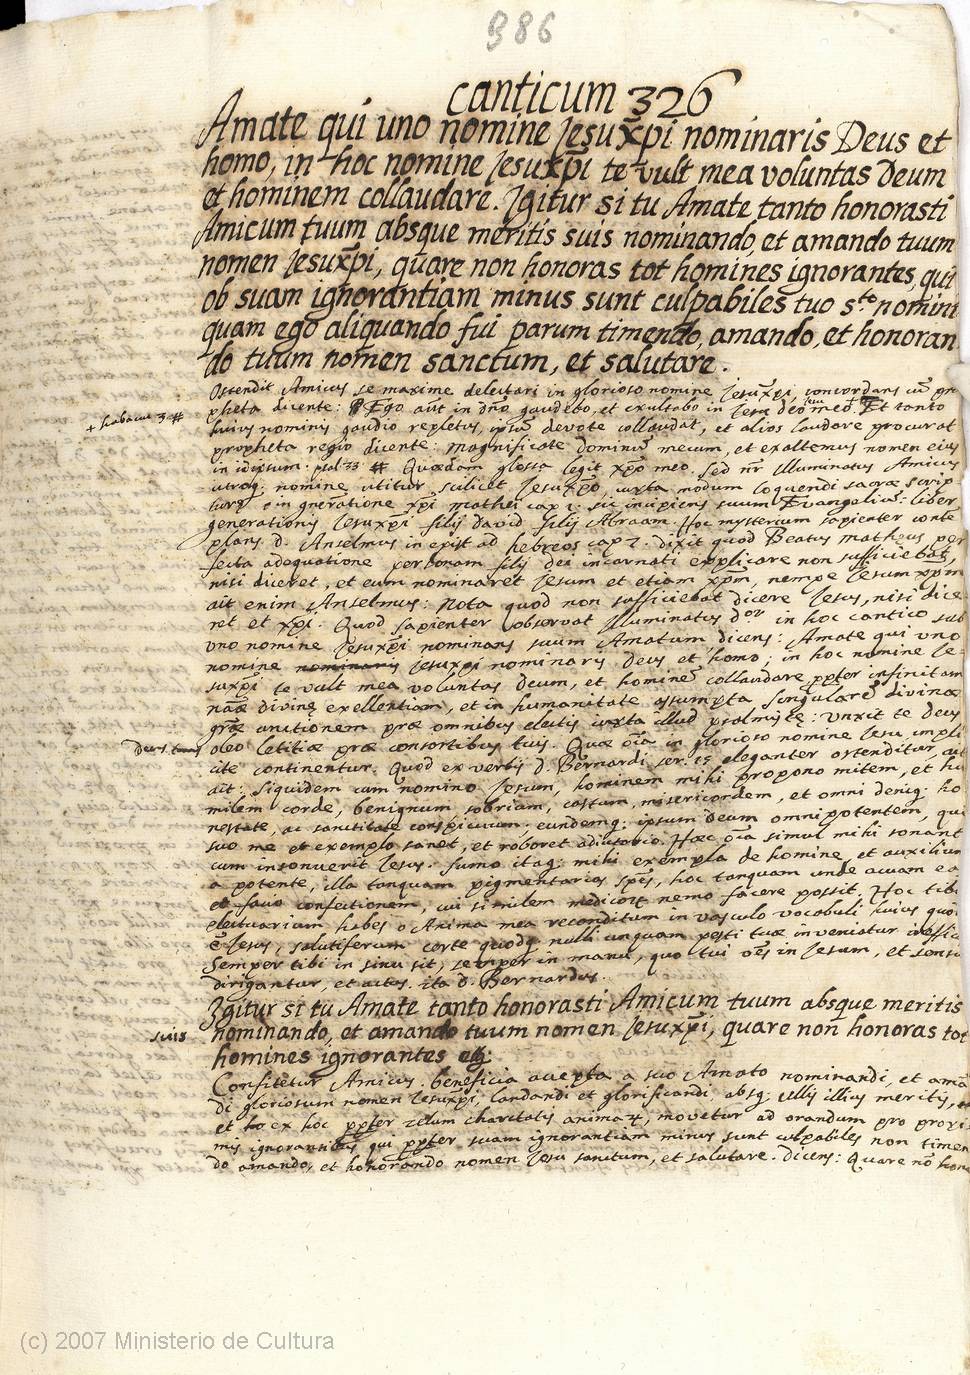 386
canticum 326
Amate qui uno nomine Jesux̄pi nominaris Deus et
homo, in hoc nomine Jesuxp̄i te vult mea voluntas Deum
et hominem collaudare. Igitur si tu Amate tanto honorasti
Amicum tuum absque meritis suis nominando, et amando tuum
nomen Jesux̄pi, quare non honoras tot homines ignorantes, qui
ob suam ignorantiam minus sunt culpabiles tuo s.to nomini
quam ego aliquando fui parum timendo, amando, et honoran
do tuum nomen sanctum, et salutare.
Ostendit Amicus se maxime delectari in glorioso nomine Jesux̄pi, concordans cū pro
pheta dicente: Ego aūt in dn̄o gaudebo, et exultabo in Jesu deo meo. Et tanto
+ habacuc 3 #
huius nominis gaudio repletus, ipsum devote collaudat, et alios laudare procurat
propheta regio dicente: Magnificate dominum mecum, et exaltemus nomen eius
in idipsum. psal: 33 # Quædam glossa legit xp̄o meo. sed nr̄ Illuminatus Amicus
utroq; nomine utitur, scilicet Jesuxp̄o, iuxta modum loquendi sacræ scrip
turæ in gn̄eratione xp̄i mathei cap 1. sic incipiens suum Evangelium: liber
generationis Jesuxp̄i filij David filij Abraam. Hoc mysterium sapienter contē
plans D. Anselmus in epist ad hebreos cap 2. dixit quod Beatus Matheus per
fecta adequatione personam filij dei incarnati explicare non sufficiebat,
nisi diceret, et eum nominaret Jesum et etiam xp̄m, nempe Jesumxp̄m
ait enim Anselmus: Nota quod non sufficiebat dicere Jesus, nisi dice
ret et xp̄i. Quod sapienter observat Illuminatus D.or in hoc cantico sub
uno nomine Jesuxp̄i nominans suum Amatum, dicens: Amate qui uno
nomine nominaris Jesuxpi nominaris Deus et homo; in hoc nomine Je
suxp̄i te vult mea voluntas Deum, et hominē collaudare pp̄ter infinitam
nāæ divinę exellentiam, et in humanitate assumpta singularē divinæ
grāæ unctionem præ omnibus electis iuxta illud psalmistę: Unxit te Deus
Deus tuus
oleo letitiæ præ consortibus tuis. Quæ oīa in glorioso nomine Jesu, impli
cite continentur. Quod ex verbis D. Bernardi ser. 15 eleganter ostenditur, aut
ait: Siquidem cum nomino Jesum, hominem mihi propono mitem, et hu
milem corde, benignum sobrium, castum, misericordem, et omni deniq; ho
nestate, ac sanctitate conspicuum; eundemq; ipsum Deum omnipotentem, qui
suo me et exemplo sanet, et roboret adiutorio. Hæc oīa simul mihi sonant
cum insonuerit Jesus. sumo itaq; mihi exempla de homine, et auxilium
a potente, illa tanquam pigmentarias spēs, hoc tanquam unde acuam ea
et facio confectionem, cui similem medicorum nemo facere possit. Hoc tibi
electuarium habes o Anima mea reconditum in vasculo vocabuli huius quod
ē Jesus, salutiferum certe quodq; nulli unquam pesti tuæ inveniatur inefficax
semper tibi in sinu sit, semper in manu, quo tui oēs in Jesum, et sensus
dirigantur, et actus. ita D. Bernardus.
Igitur si tu Amate tanto honorasti Amicum tuum absque meritis
suis
nominando, et amando tuum nomen Jesuxp̄i, quare non honoras tot
homines ignorantes etc:
Confitetur Amicus beneficia accepta a suo Amato nominandi, et amā
di gloriosum nomen Jesuxp̄i, laudandi et glorificandi, absq; ullis illius meritis,
et ex hoc pp̄ter zelum charitatis animarum, movetur ad orandum pro proxi
mis ignorantibus, qui pp̄ter suam ignorantiam minus sunt culpabiles non timen
do amando, et honorando nomen Jesu sanctum, et salutare. dicens: Quare nō hono
(c) 2007 Ministerio de Cultura